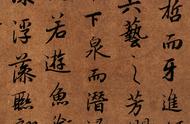 晢而互進
六藝之芳潤
下泉而潛
若遊魚銜
深浮藻聯